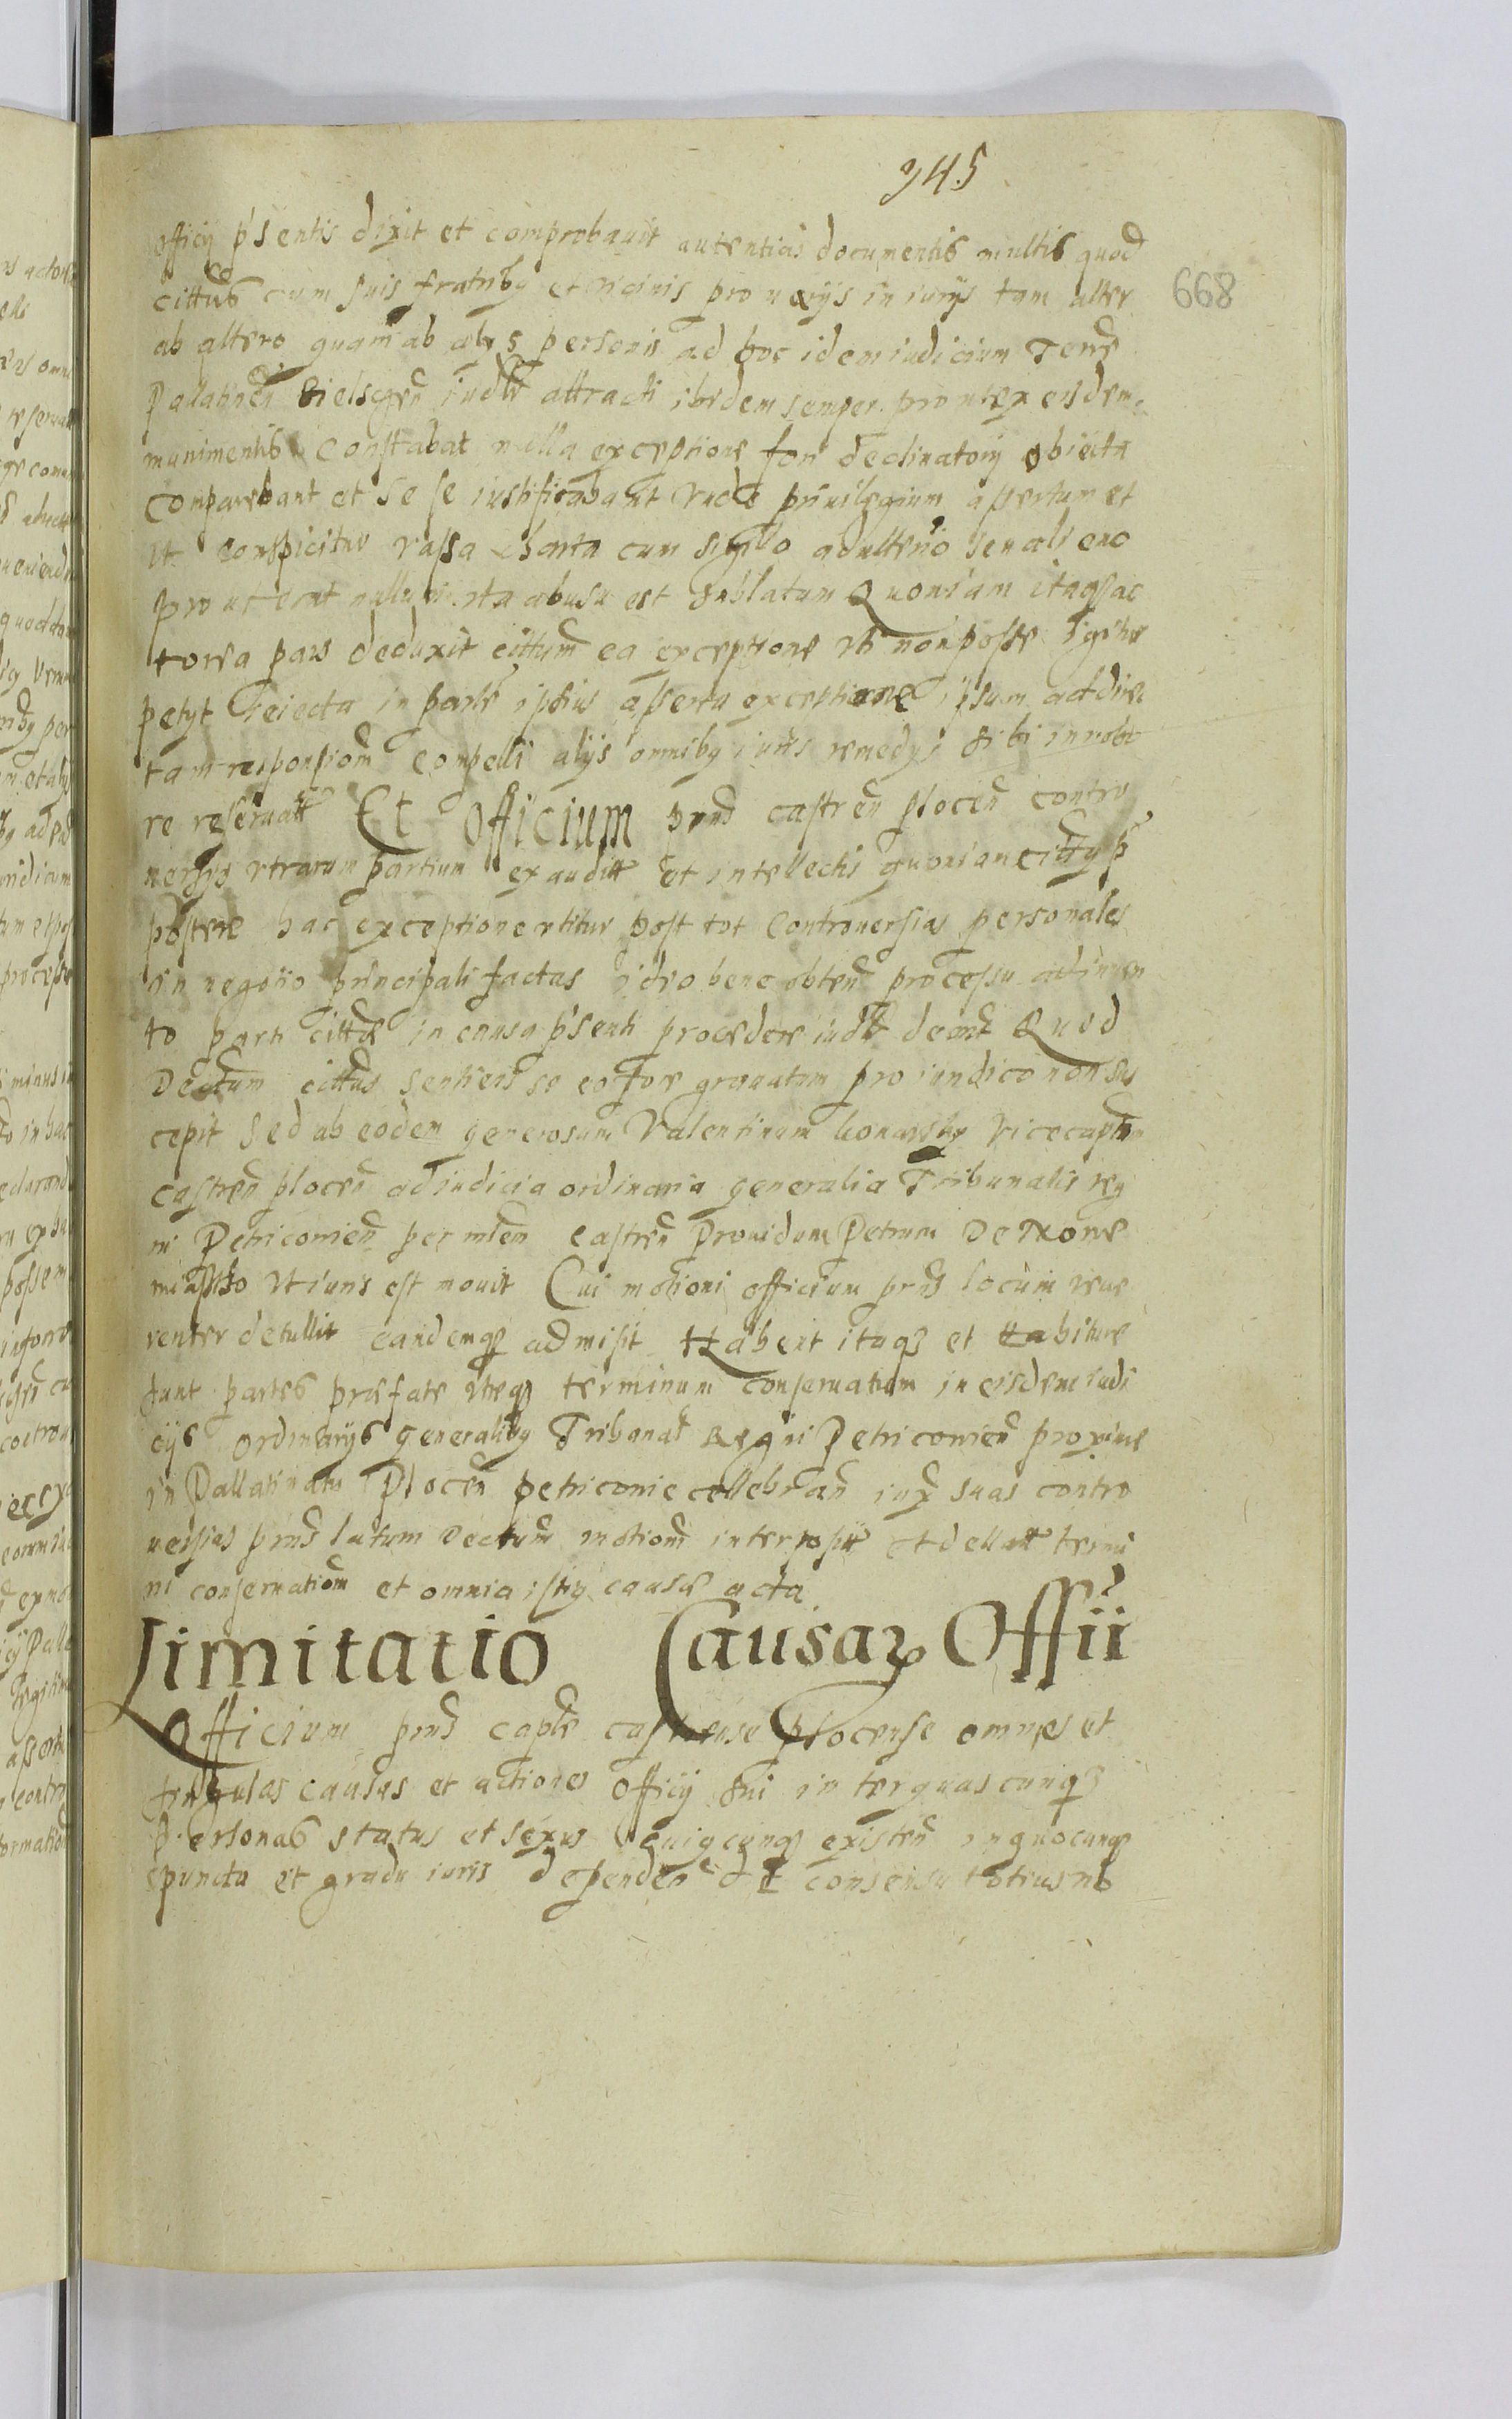 945
668
officij p'sentis dixit et comprobauit autenticis documentis multis quod
cittus cum suis fratribq et vicinis pro varijs iniurijs tam alter
ab altero quam ab alijs personis ad hoc idem iudicium Terrē
Palatinēn Bielscen iudle attracti ibidem semper prout ex eisdem
munimentis constabat nulla exceptione fori declinatorij obiecta
comparebant et se se iustificabant Vnde priuilegium assertum et
vt conspicitur rassa charta cum sigillo adulterio seu alieno
prout erat ita abusu est sublatum Quoniam itaqz ac
torea pars deduxit cittum ea exceptione vti non posse Igitur
petyt reiecta in parte ipsius asserta exceptione ipsum ad direc
tam responsiom compelli alijs omnibq iuris remedijs sibi in robo
re reseruatt Et Officium pnns castren plocen contro
uersijs vtrarum partium exauditt et intellectis quoniam cittq p
postere hac exceptione vtitur post tot controuersias personales
in negotio principali factas ideo bene obten processu adinuen
to parti cittae in causa p'senti procedere iudlr decreuit Quod
Decretum cittus sentiens se eo fore grauatum pro iuridico non sus
cepit sed ab eodem generosum Valentinum vicecaptm
castren plocen ad iudicia ordinaria generalia Tribunalis reg
ni Petricouien per mlem castren Prouidum Petrum De Nowe
miastko vt iuris est mouit Cui motioni officium pnns locum reue
renter detullit eandemqz admisit Habent itaqz et habiture
sunt partes praefate vtreqz terminum conseruatum in eisdem iudi
cijs ordinarijs generalibq Tribunal Regni Petricouien proxime
in Pallatinatu Plocen Petricouie cellebran iuxta suas contro
uersias pnns latum Decretum motiom interpositt et dellatt termi
ni conseruatiom et omnia istiq causae acta
Limitatio Causarz Offii
Officium pnns caple castrense plocense omnes et
singulas causas et actiones officij sui inter quascunqz
personas status et sexus cuiqcunqz existen in quocunqz
puncto et gradu iuris dependen de consensu totius nb